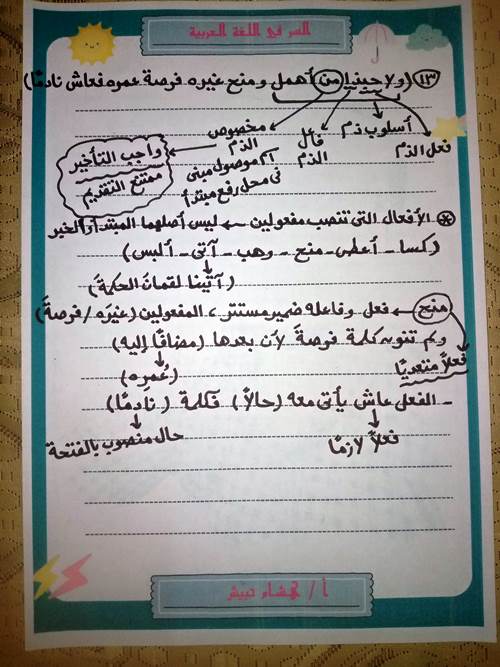 السر في اللغة العربية
١٣ (ولا حبذا من أهمل ومنح غيره فرصة عمره فعاش نادمًا)
فعل الذم
أسلوب ذم
فاعل الذم
مخصوص الذم
اسم موصول مبنى
فى محل رفع مبتدأ
واجب التأخير
ممتنع التقديم
* الأفعال التى تنصب مفعولين ← ليس أصلهما المبتدأ والخبر
(كسا - أعطى - منح - وهب - آتى - ألبس)
(آتينا لقمانَ الحكمةَ)
منح ← فعل وفاعله ضمير مستتر، المفعولين (غيرَه / فرصةَ)
ولم تنون كلمة فرصةَ لأن بعدها (مضافًا إليه)
فعلًا متعديًا
(عُمرِه)
- الفعل عاش يأتى معه (حالًا) فكلمة (نادمًا)
فعلًا لازمًا
حال منصوب بالفتحة
أ / هشام حبيش